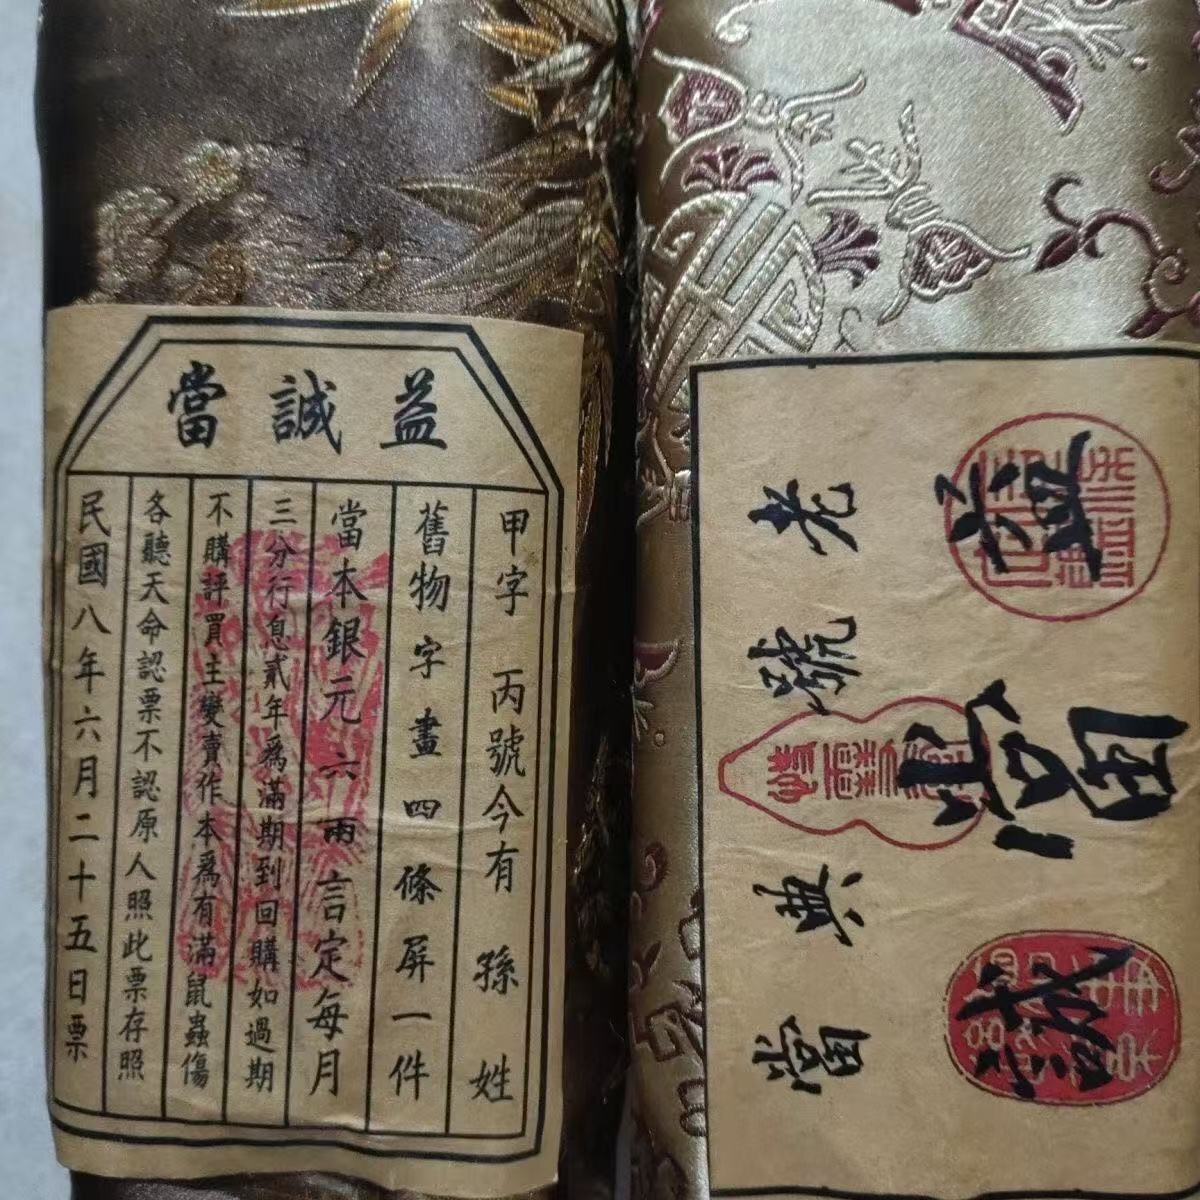 益誠當
甲字 丙號今有 孫 姓
舊物字畫四條屏一件
當本銀元六兩言定每月
三分行息貳年為滿期到回購如過期
不購評買主變賣作本為有滿鼠蟲傷
各聽天命認票不認原人照此票存照
民國八年六月二十五日票
益當誠
老號典當